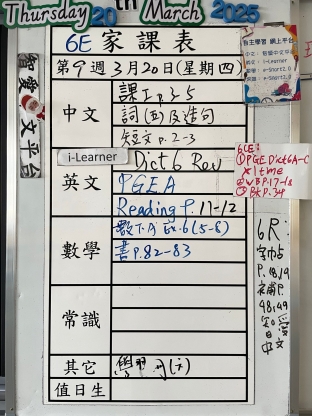 Thursday 20th March 2025
6E 家課表
第9週3月20日(星期四)
中文
課工 p.3-5
詞(五)及造句
短文 p.2-3
i-Learner
Dict 6 Rev
英文
PGEA
Reading P. 11-12
數學
數下A Ex.6(5-6)
書 p.82-83
常識
其它
值日生
智愛中文平台
自主學習 網上平台
6CE:
①PGE Dict 6A-C
x1 time
②WB P.17-18
6R
P.18,19
補P.
48,49
智愛
中文